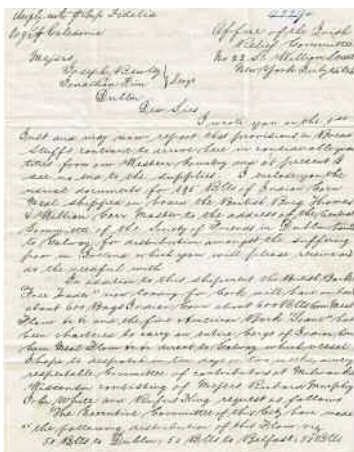 Office of the Irish
Relief Committee
No 22 So William Street
New York July
Messrs
Joseph Bewley
Jonathan Pim
Dublin
Dear Sirs
I wrote you on the
and may now report that provisions &
Stuffs continue to arrive here in considerable quan
tities from our Western Country and at present I
see no end to the supplies. I enclose you the
usual documents for 195 Blls of Indian Corn
Meal shipped on board the British Brig Thomas
& William Carr Master to the address of the Central
Committee of the Society of Friends in Dublin
to Galway for distribution amongst the suffering
poor in Ireland which you will please receive
do the needful with
In addition to this shipment the British Bark
Free Trader now loading for Cork will have on board
about 600 Bags Indian Corn and 600 Blls Corn Meal
Flour &c and the first American Bark has
been chartered to carry an entire Cargo of Indian Corn
Corn Meal Flour &c direct to Galway which vessel
I hope to despatch in ten days or two weeks, a very
respectable Committee of contributors at Milwaukie
Wisconsin consisting of Messrs Richard Murphy
White and Rufus King request as follows
The Executive Committee of this City have made
the following distribution of this Flour viz
50 Blls to Dublin, 50 Blls to Belfast, 50 Blls